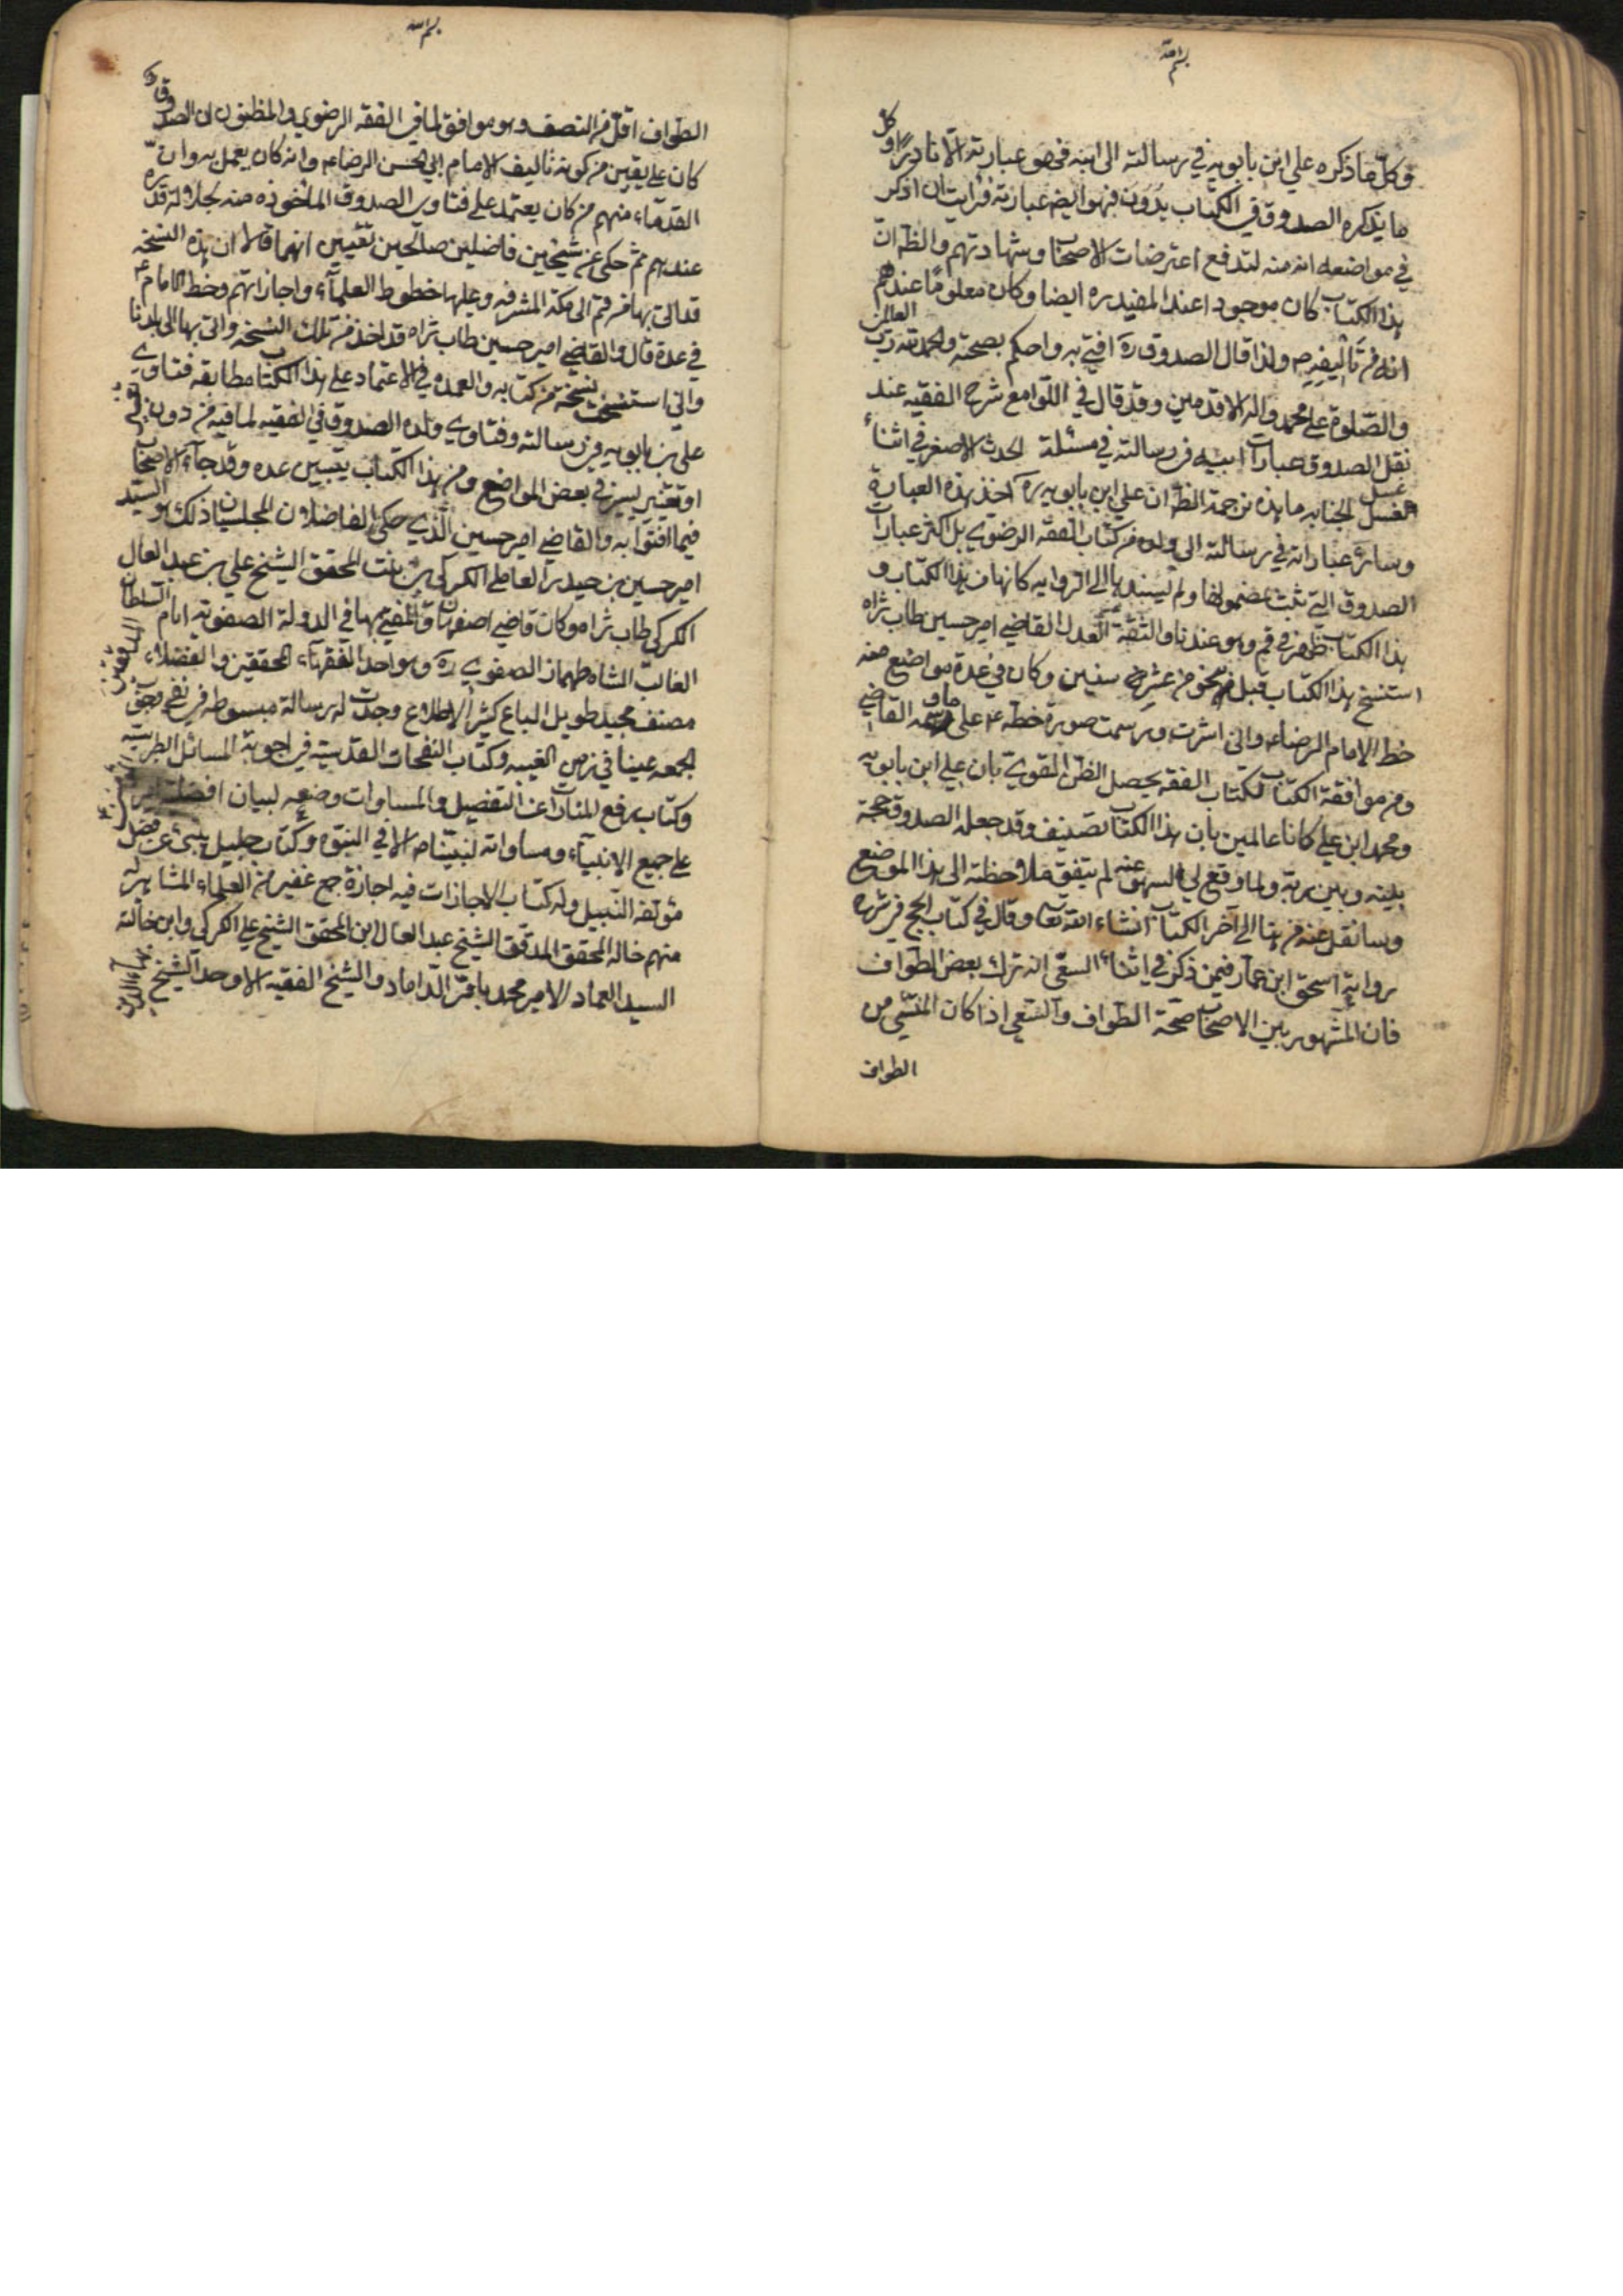 بسم الله
وكل ما ذكره علي ابن بابويه في رسالته الى ابنه فهو عبارته الا نادرًا وكل
ما يذكره الصدوق في الكتاب بدون فهو ايضا عبارته فرايت ان اذكر
في مواضعه انه منه لتدفع اعتراضات الاصحاب وشهادتهم والظ ان
هذا الكتاب كان موجودا عند المفيد ره ايضا وكان معلومًا عندهم
انه من تاليفه ص ولذا قال الصدوق ره افتي به واحكم بصحته والحمد لله رب العالمين
والصلوة على محمد واله الاقدمين وقد قال في اللوامع شرح الفقيه عند
نقل الصدوق عبارات ابيه في رسالته في مسئلة الحدث الاصغر في اثناء
غسل الجنابه ما هذه ترجمة الظ ان علي ابن بابويه ره اخذ هذه العبارة
وسائر عباراته في رسالته الى ولده من كتاب الفقه الرضوي بل اكثر عبارات
الصدوق التي يفتي بمضمونها ولم يسندها الى الروايه كانها من هذا الكتاب و
هذا الكتاب ظهر في قم وهو عندنا والثقة العدل القاضي امير حسين طاب ثراه
استنسخ هذا الكتاب قبل من نحو من عشرة سنين وكان في عدة مواضع منه
خط الامام الرضاء واني اشرت ورسمت صورة خطه ع على ما رسمه القاضي
ومن موافقة الكتاب لكتاب الفقه يحصل الظن القوي بان علي ابن بابويه
ومحمد ابن علي كانا عالمين بان هذا الكتاب تصنيفه وقد جعله الصدوق حجة
بينه وبين ربه ولما وقع لي السهو عنه لم يتفق ملاحظته الى هذا الموضع
وسانقل عنه من هنا الى آخر الكتاب انشاء الله تعا وقال في كتاب الحج في شرح
رواية اسحق ابن عمار فيمن ذكر في اثناء السعي انه ترك بعض الطواف
فان المشهور بين الاصحاب صحة الطواف والسعي اذا كان المنسي من
الطواف
بسم الله
الطواف اقل من النصف وهو موافق لما في الفقه الرضوي والمظنون ان الصدوق
كان على يقين من كونه تاليف الامام ابي الحسن الرضاء وانه كان يعمل به وان
القدماء منهم من كان يعتمد على فتاوى الصدوق الماخوذه منه لجلالة قدره
عندهم ثم حكى عن شيخين فاضلين صالحين ثقتين انهما قالا ان هذه النسخه
قد اتى بها من قم الى مكة المشرفه وعليها خطوط العلماء واجازاتهم وخط الامام ع
في عدة قال والقاضي امير حسين طاب ثراه قد اخذ من تلك النسخه واتى بها الى بلدنا
واني استنسخت نسخة من كتابه والعمده في الاعتماد على هذا الكتاب مطابقه فتاوي
علي بن بابويه في رسالته وفتاوي ولده الصدوق في الفقيه لما فيه من دون تغيير
او تغيير يسير في بعض المواضع ومن هذا الكتاب يتبين عذر قدماء الاصحاب
فيما افتوا به والقاضي امير حسين الذي حكى الفاضلان المجلسيان ذلك هو السيد
امير حسين بن حيدر العاملي الكركي بن بنت المحقق الشيخ علي بن عبد العال
الكركي طاب ثراه وكان قاضي اصفهان والمفتي بها في الدولة الصفويه ايام السلطان
الغالب الشاه طهماز الصفوي ره وهو احد الفقهاء المحققين والفضلاء المدققين
مصنف مجيد طويل الباع كثير الاطلاع وجدت له رسالة مبسوطه في نفي وجوب
الجمعه عينا في زمن الغيبه وكتاب النفحات القدسيه في اجوبة المسائل الطبرسيه
وكتاب رفع المناوات عن التفضيل والمساوات وضعه لبيان افضلية امير
على جميع الانبياء ومساواته لنبينا ص الا في النبوه وكتاب جليل ينبئ عن فضل
مؤلفه النبيل وله كتاب الاجازات فيه اجازة جمع غفير من العلماء المشاهير
منهم خاله المحقق المدقق الشيخ عبد العال ابن المحقق الشيخ علي الكركي وابن خالته
السيد العماد الامير محمد باقر الداماد والشيخ الفقيه الاوحد الشيخ بهاء الدين